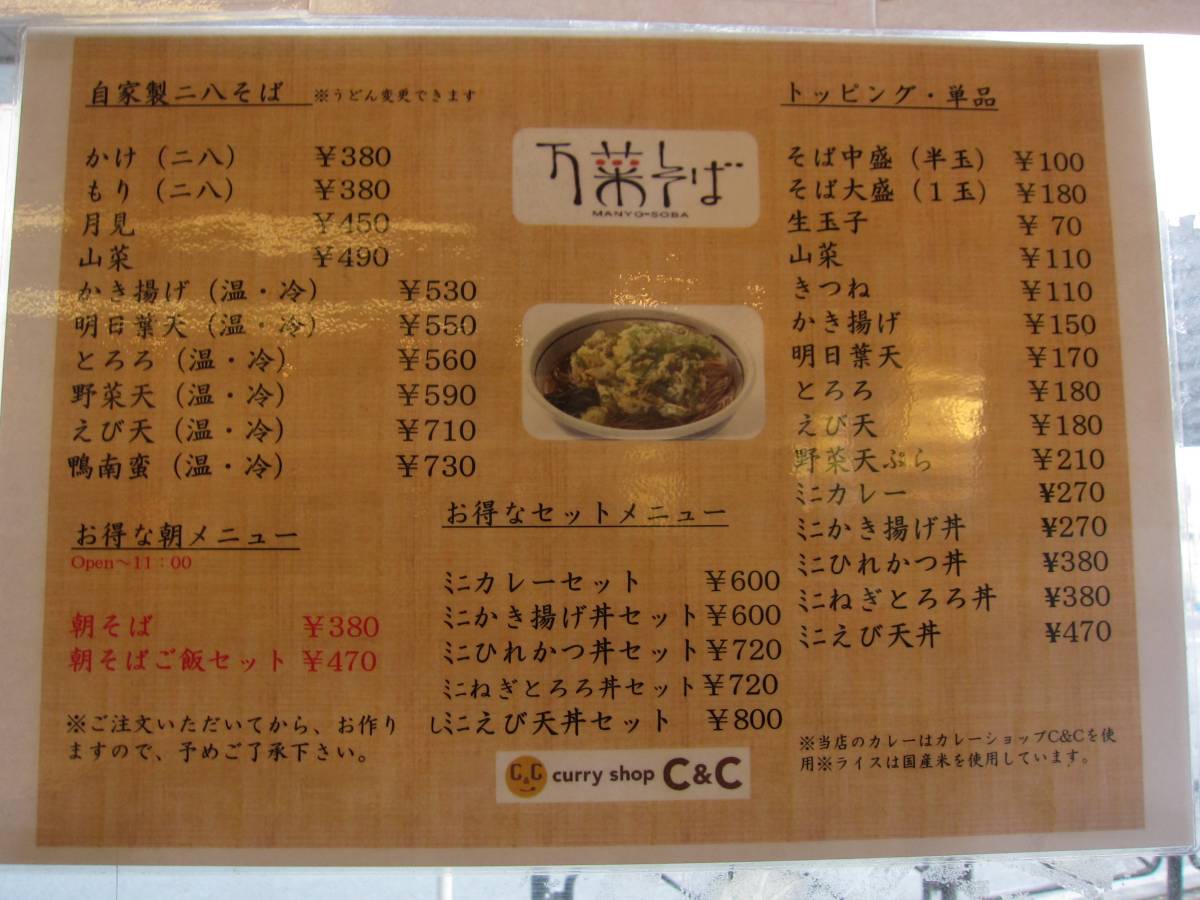 自家製二八そば ※うどん変更できます
かけ（二八） ￥380
もり（二八） ￥380
月見 ￥450
山菜 ￥490
かき揚げ（温・冷） ￥530
明日葉天（温・冷） ￥550
とろろ（温・冷） ￥560
野菜天（温・冷） ￥590
えび天（温・冷） ￥710
鴨南蛮（温・冷） ￥730
お得な朝メニュー
Open～11：00
朝そば ￥380
朝そばご飯セット ￥470
※ご注文いただいてから、お作りし
ますので、予めご了承下さい。
万菜そば
MANYO-SOBA
お得なセットメニュー
ミニカレーセット ￥600
ミニかき揚げ丼セット ￥600
ミニひれかつ丼セット ￥720
ミニねぎとろろ丼セット ￥720
ミニえび天丼セット ￥800
C&C curry shop C&C
トッピング・単品
そば中盛（半玉） ￥100
そば大盛（１玉） ￥180
生玉子 ￥ 70
山菜 ￥110
きつね ￥110
かき揚げ ￥150
明日葉天 ￥170
とろろ ￥180
えび天 ￥180
野菜天ぷら ￥210
ミニカレー ¥270
ミニかき揚げ丼 ¥270
ミニひれかつ丼 ¥380
ミニねぎとろろ丼 ¥380
ミニえび天丼 ¥470
※当店のカレーはカレーショップC&Cを使
用※ライスは国産米を使用しています。